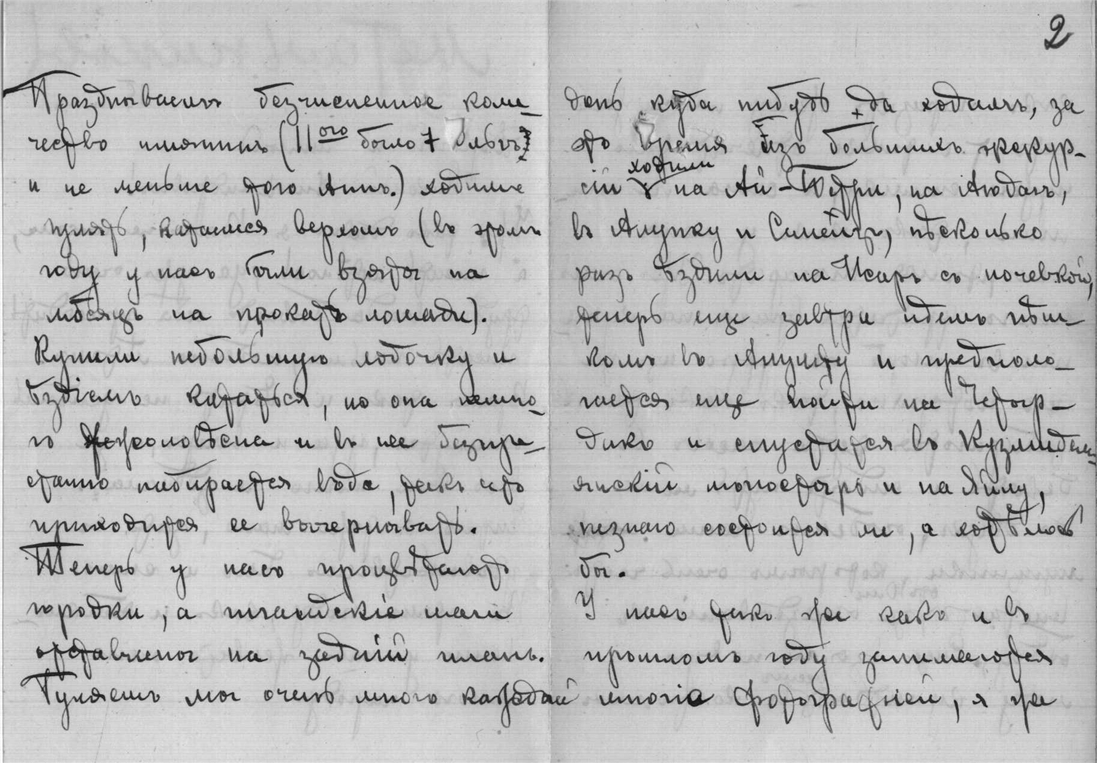 2
Празднываемъ безчисленное коли-
чество именинъ (11ого было 7 Ольгъ
и не меньше того Аннъ.) ходили
гулять, катаемся верхомъ (въ этомъ
году у насъ были взяты на
мѣсяцъ на прокатъ лошади).
Купили небольшую лодочку и
ѣздіемъ кататься, но она немно-
го и въ нее безпре-
станно набирается вода, такъ что
приходится, ее вычерпывать.
Теперь у насъ процвѣтаютъ
городки, а гигантскіе шаги
оставлены на задній планъ.
Гуляемъ мы очень много каждый
день куда нибудь да ходимъ, за
это время изъ большихъ экскур-
сій ходили на Ай-Петри, на Аюдагъ,
въ Алупку и Симеизъ, нѣсколько
разъ ѣздили на Исаръ съ ночевкой,
теперь еще завтра идемъ пѣш-
комъ въ Алушту и предполо-
гается еще пойти на Чатыр-
дагъ и спустится въ Кузмидемь-
янскій монастырь и на Яйлу,
незнаю состоится ли, а хотѣлось
бы.
У насъ такъ же какъ и въ
прошломъ году занимаются
многіе фотографіей, я же